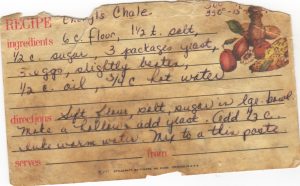 RECIPE Cheryl's Chale
300
350° - 15
ingredients 6 c. floor, 1½ t. salt,
½ c sugar, 3 packages yeast,
3 eggs, slightly beaten,
½ c. oil, ¾ c hot water
directions Sift flour, salt, sugar in lge. bowl.
Make a hollow add yeast. Add ½ c.
luke warm water. Mix to a thin paste
serves from